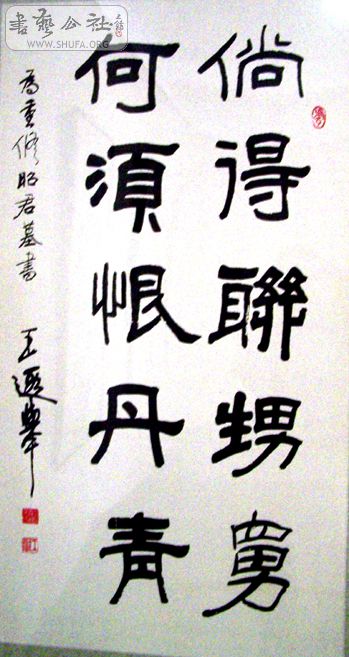 倘得聯甥舅
何須恨丹青
為重修昭君墓書 王遐舉
書藝公社
www.SHUFA.ORG